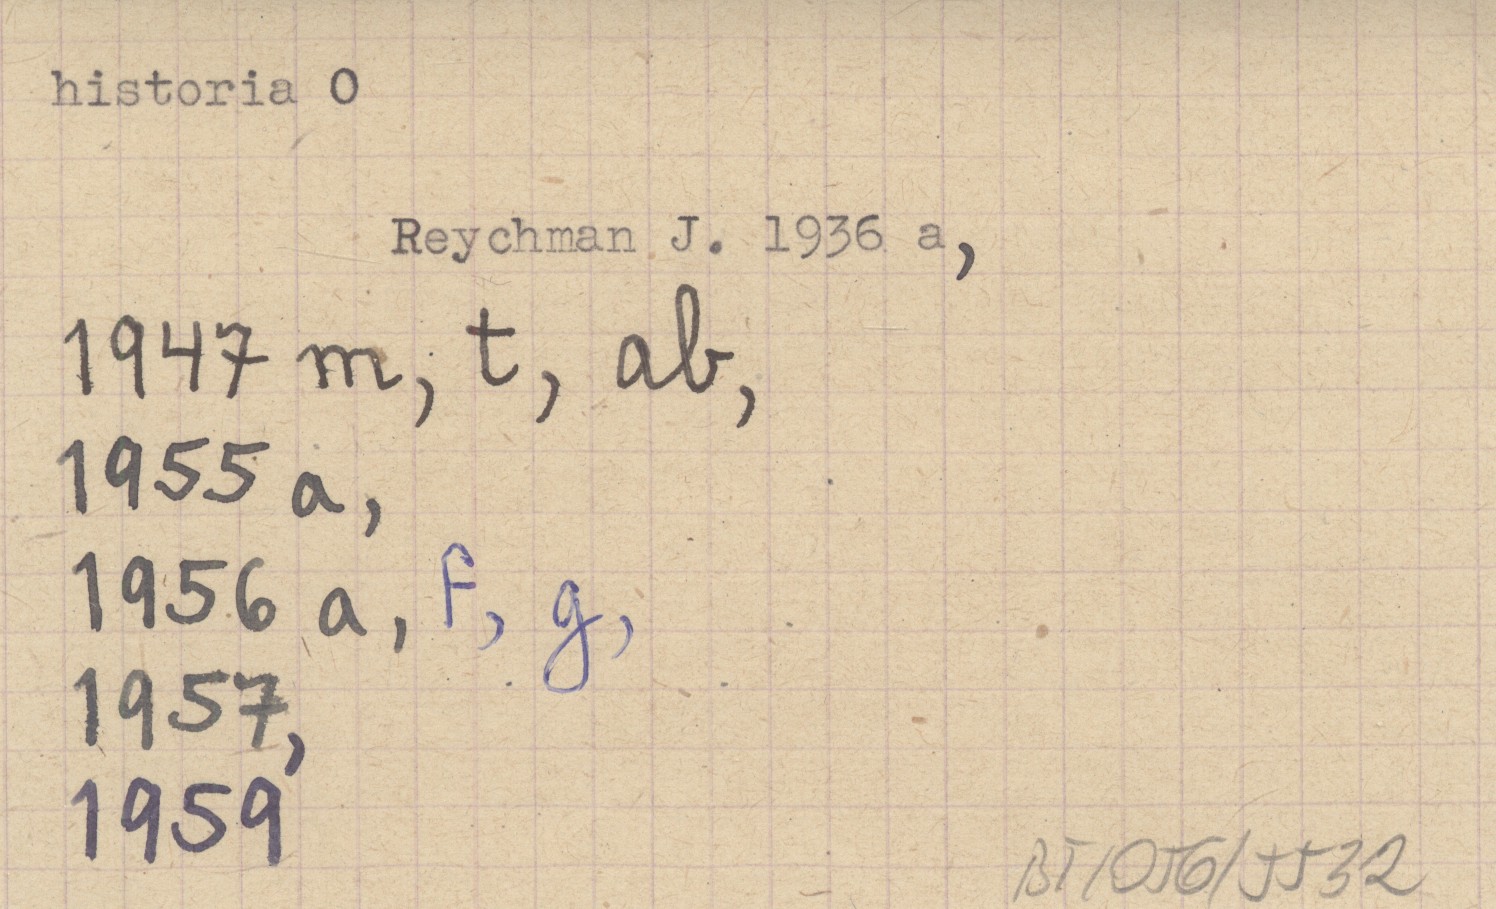 historia O
Reychman J. 1936 a,
1947 m, t, ab,
1955 a,
1956 a, f, g,
1957,
1959
BT/056/5532